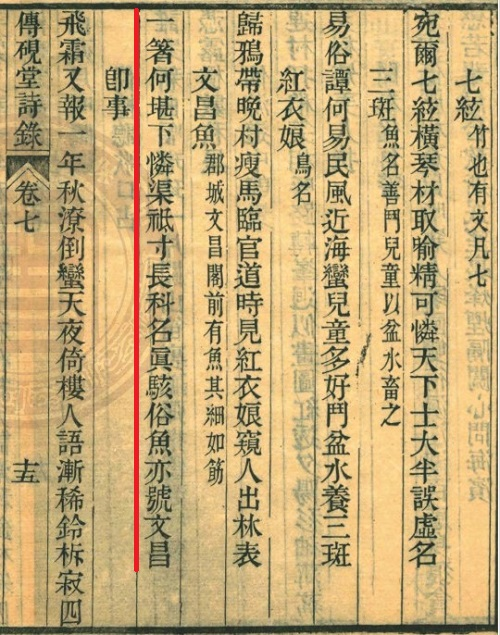 七絃 竹也有文凡七
宛爾七絃橫琴材取喻精可憐天下士大半誤虛名
三斑 魚名善鬥兒童以盆水畜之
易俗譚何易民風近海蠻兒童多好鬥盆水養三斑
紅衣娘 鳥名
歸鴉帶晚村瘦馬臨官道時見紅衣娘窺人出林表
文昌魚 郡城文昌閣前有魚其細如筯
一箸何堪下憐渠祗寸長科名眞駭俗魚亦號文昌
卽事
飛霜又報一年秋潦倒蠻天夜倚樓人語漸稀鈴柝寂四
傳硯堂詩錄 卷七 十五